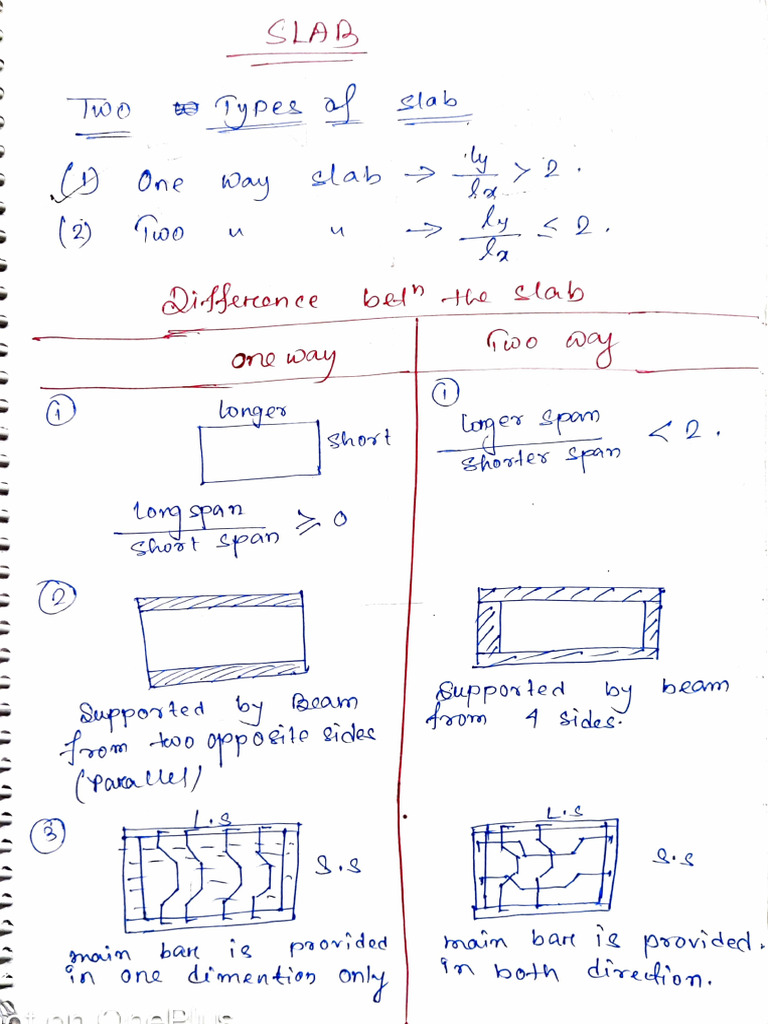 SLAB
Two Types of slab
(1) One way slab → ly/lx > 2.
(2) Two " " → ly/lx ≤ 2.
Difference betn the slab
one way
Two way
①
longer
short
long span / short span ≥ 0
①
longer span / shorter span < 2.
②
Supported by Beam
from two opposite sides
(parallel)
supported by beam
from 4 sides.
③
L.S
S.S
main bar is provided
in one dimention only
L.S
S.S
main bar is provided.
in both direction.